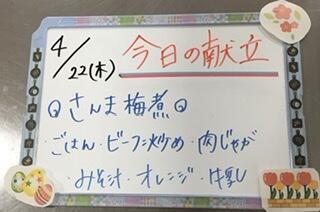 4/22(木) 今日の献立
さんま梅煮
・ごはん・ビーフン炒め・肉じゃが
・みそ汁・オレンジ・牛乳